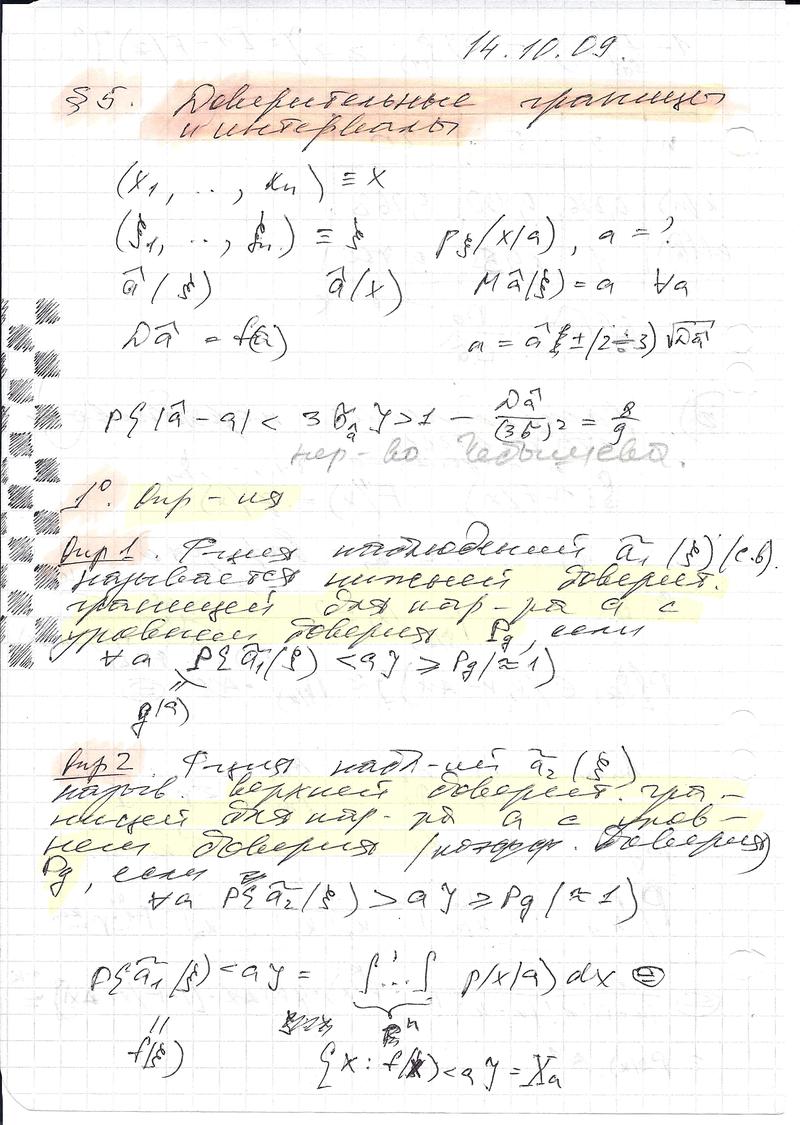 14.10.09.
§ 5. Доверительные границы
и интервалы
(x₁, .., xₙ) ≡ x
(ξ₁, .., ξₙ) ≡ ξ   p_ξ(x/a), a = ?
â(ξ)   â(x)   Mâ(ξ) = a ∀a
Dâ = f(a)   a = âξ ± (2÷3) √Dâ
P{|â - a| < 3σ_â} > 1 - Dâ/(3σ)² = 8/9
нер-во Чебышева.
1°. Опр-ия
Опр 1. Ф-ция наблюдений ã₁(ξ) (с.в).
называется нижней доверит.
границей для пар-ра a с
уровнем доверия Pg, если
∀a P{ã₁(ξ) < a} ≥ Pg (≈ 1)
=
g(a)
Опр 2. Ф-ция набл-ий ã₂(ξ)
назыв. верхней доверит. гра-
ницей для пар-ра a с уров-
нем доверия (коэфф. доверия)
Pg, если
∀a P{ã₂(ξ) > a} ≥ Pg (≈ 1)
P{ã₁(ξ) < a} = ∫...∫ p(x/a) dx ⊜
=   Rⁿ
f(ξ)   {x: f(x) < a} = Xa